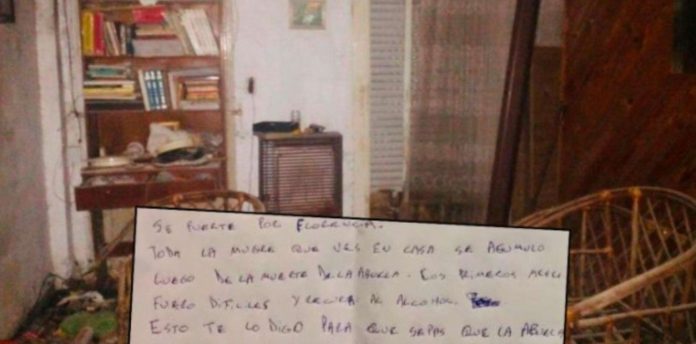 SE FUERTE POR FLORENCIA.
TODA LA MUGRE QUE VES EN CASA SE ACUMULO
LUEGO DE LA MUERTE DE LA ABUELA. LOS PRIMEROS MESES
FUERO DIFICILES Y RECURRI AL ALCOHOL.
ESTO TE LO DIGO PARA QUE SEPAS QUE LA ABUELA